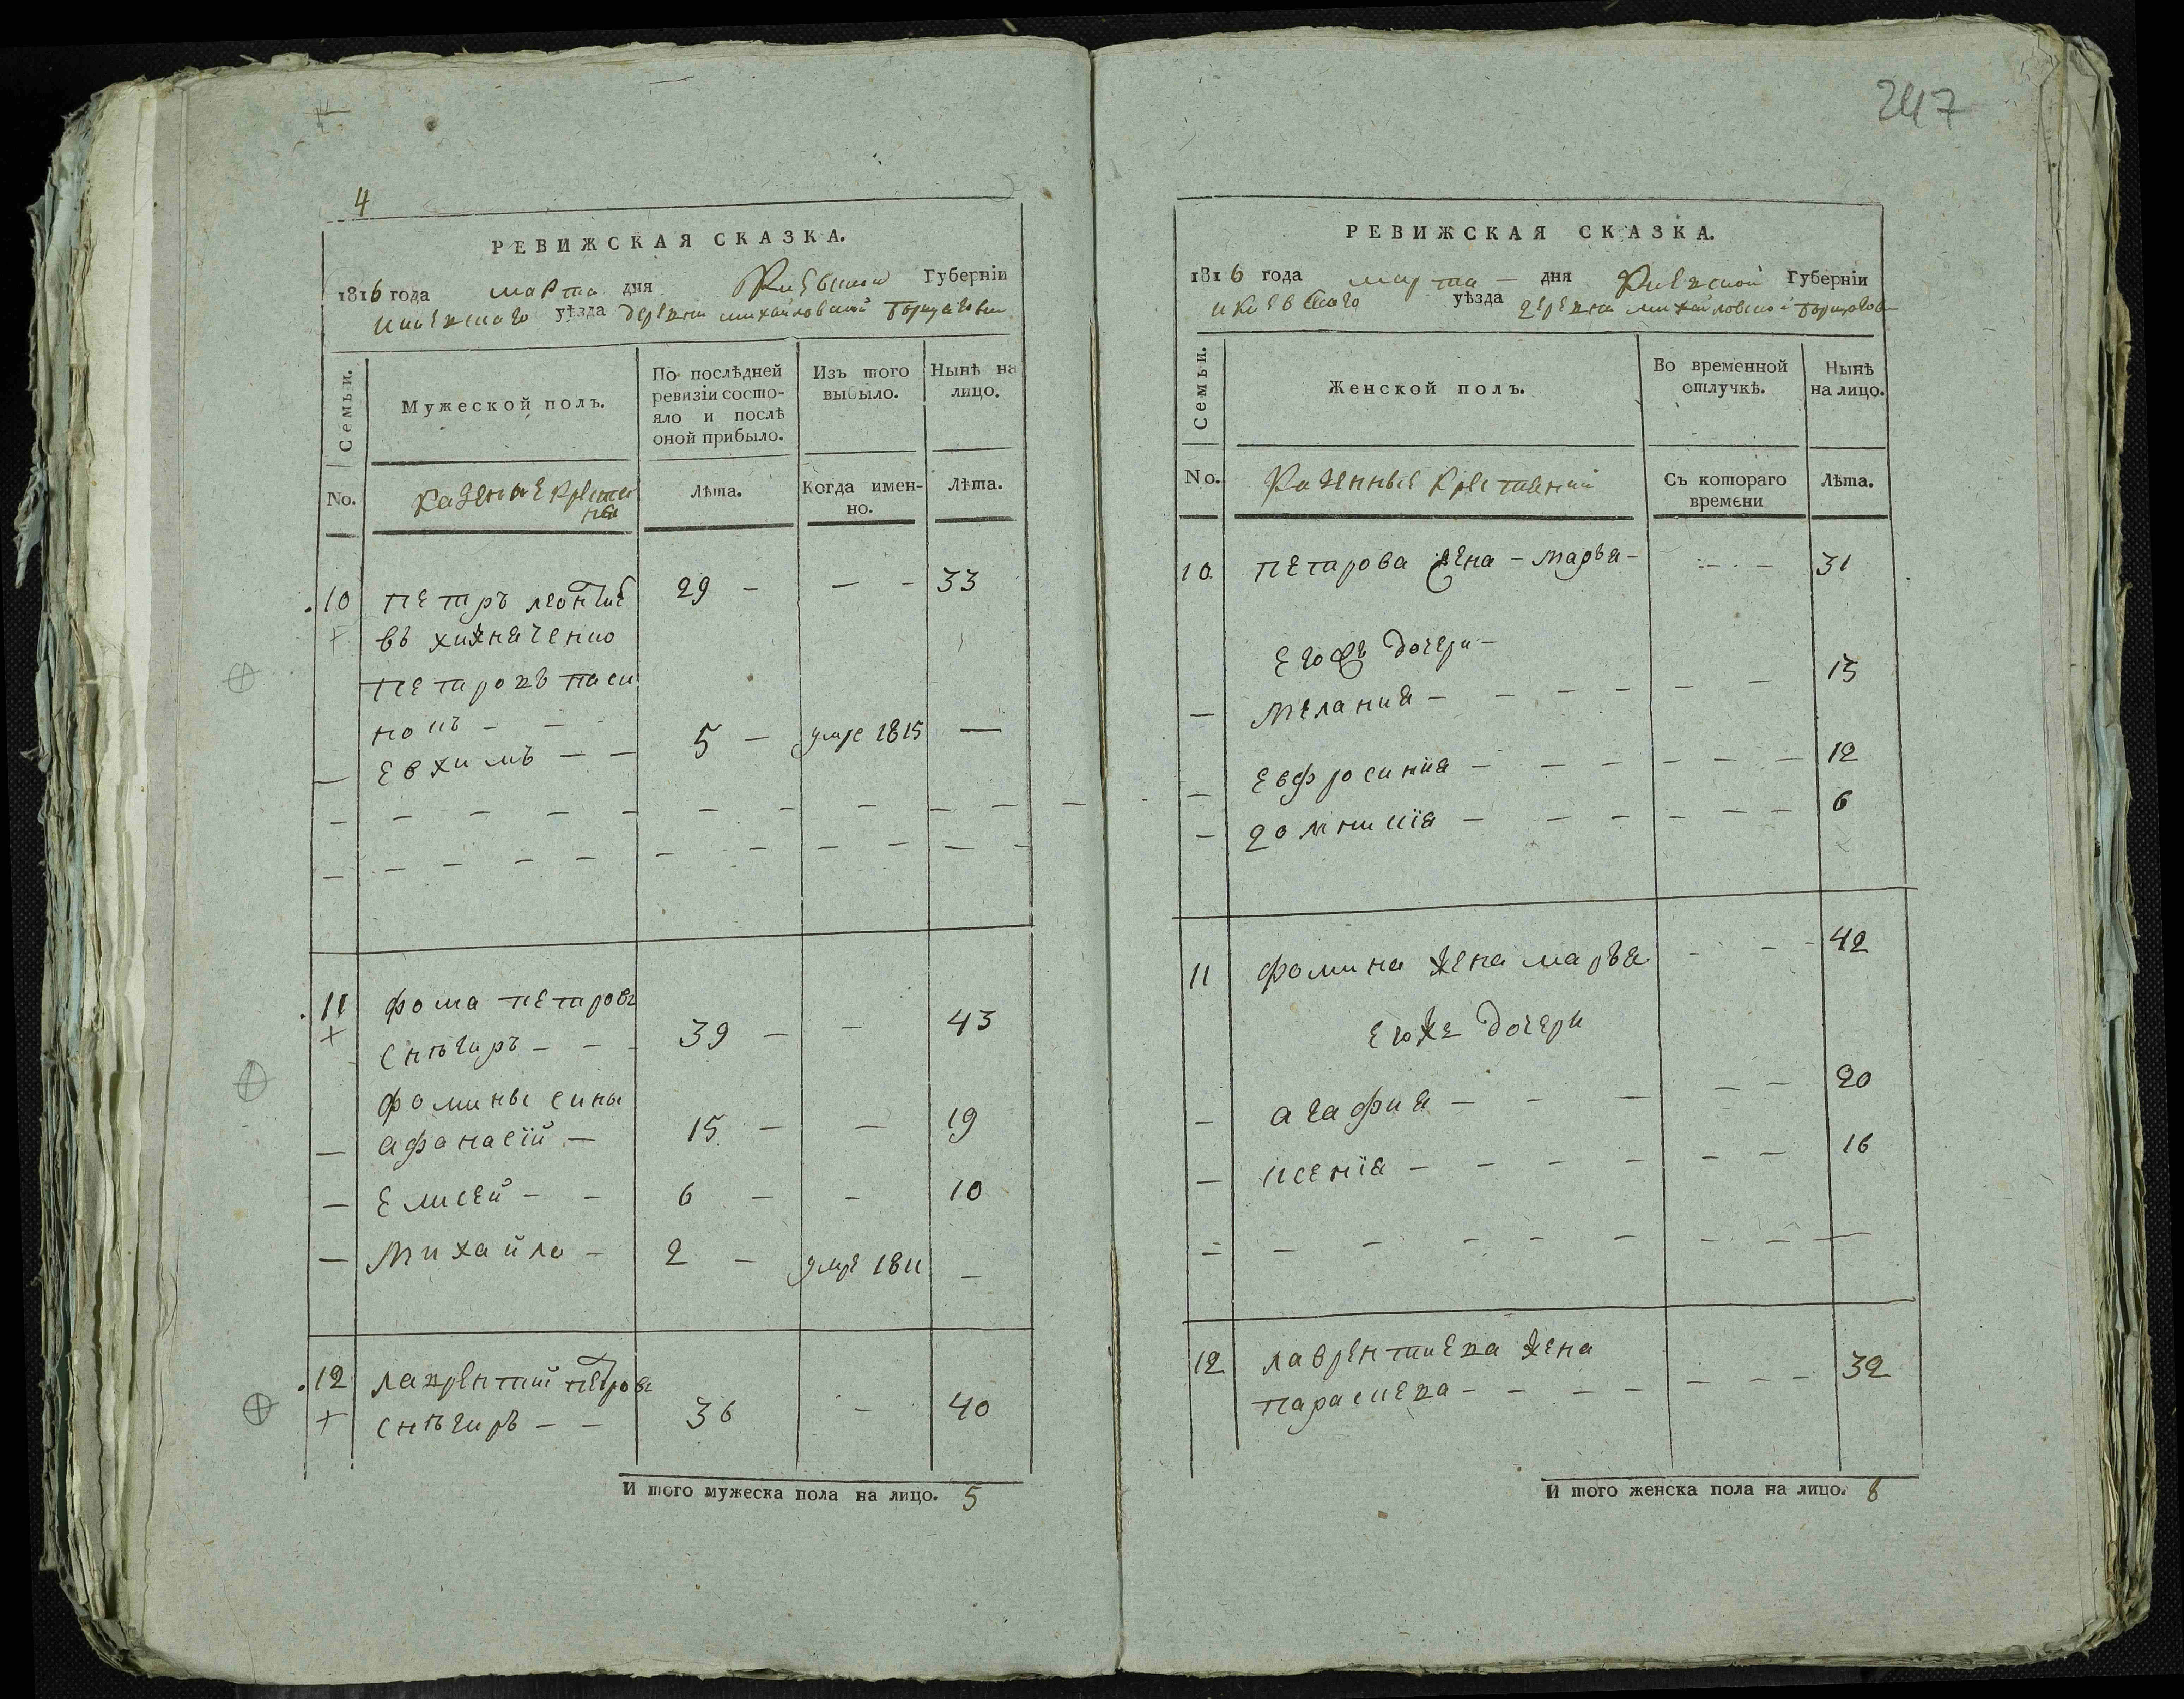 4
РЕВИЖСКАЯ СКАЗКА.
1816 года марта дня Киевской Губерніи
Киевского уѣзда деревни михайловской Борщаговки
Семьи.
Мужеской полъ.
По послѣдней ревизіи состояло и послѣ оной прибыло.
Изъ того выбыло.
Нынѣ на лицо.
No.
Казеные крестяне
Лѣта.
Когда именно.
Лѣта.
10 Петръ леонтие 29 — — — 33
въ
Петровъ пасы
нокъ — —
— Евхимъ — — 5 — умре 1815 —
11 фома петровъ
снѣгиръ — — — 39 — — 43
фомины сины
— афанасій — 15 — — 19
— Елисей — — 6 — — 10
— Михайло — 2 — умре 1811 —
12 лаврентий петровъ
снѣгиръ — — 36 — 40
И того мужеска пола на лицо. 5
247
РЕВИЖСКАЯ СКАЗКА.
1816 года марта — дня Киевской Губерніи
Киевского уѣзда деревни михайловской борщагов
Семьи.
Женской полъ.
Во временной отлучкѣ.
Нынѣ на лицо.
No.
Казенные крестяний
Съ котораго времени
Лѣта.
10. Петрова жена — Марья — — — 31
Егожъ дочери —
— Мелания — — — — — — 15
— Евфросиния — — — — — — 12
— домникія — — — — — — 6
11 фомина жена марья — — — 42
Егоже дочери
— агафия — — — — — 20
— ксенія — — — — — — 16
12 лаврентиева жена
параскева — — — — — — — 32
И того женска пола на лицо. 8